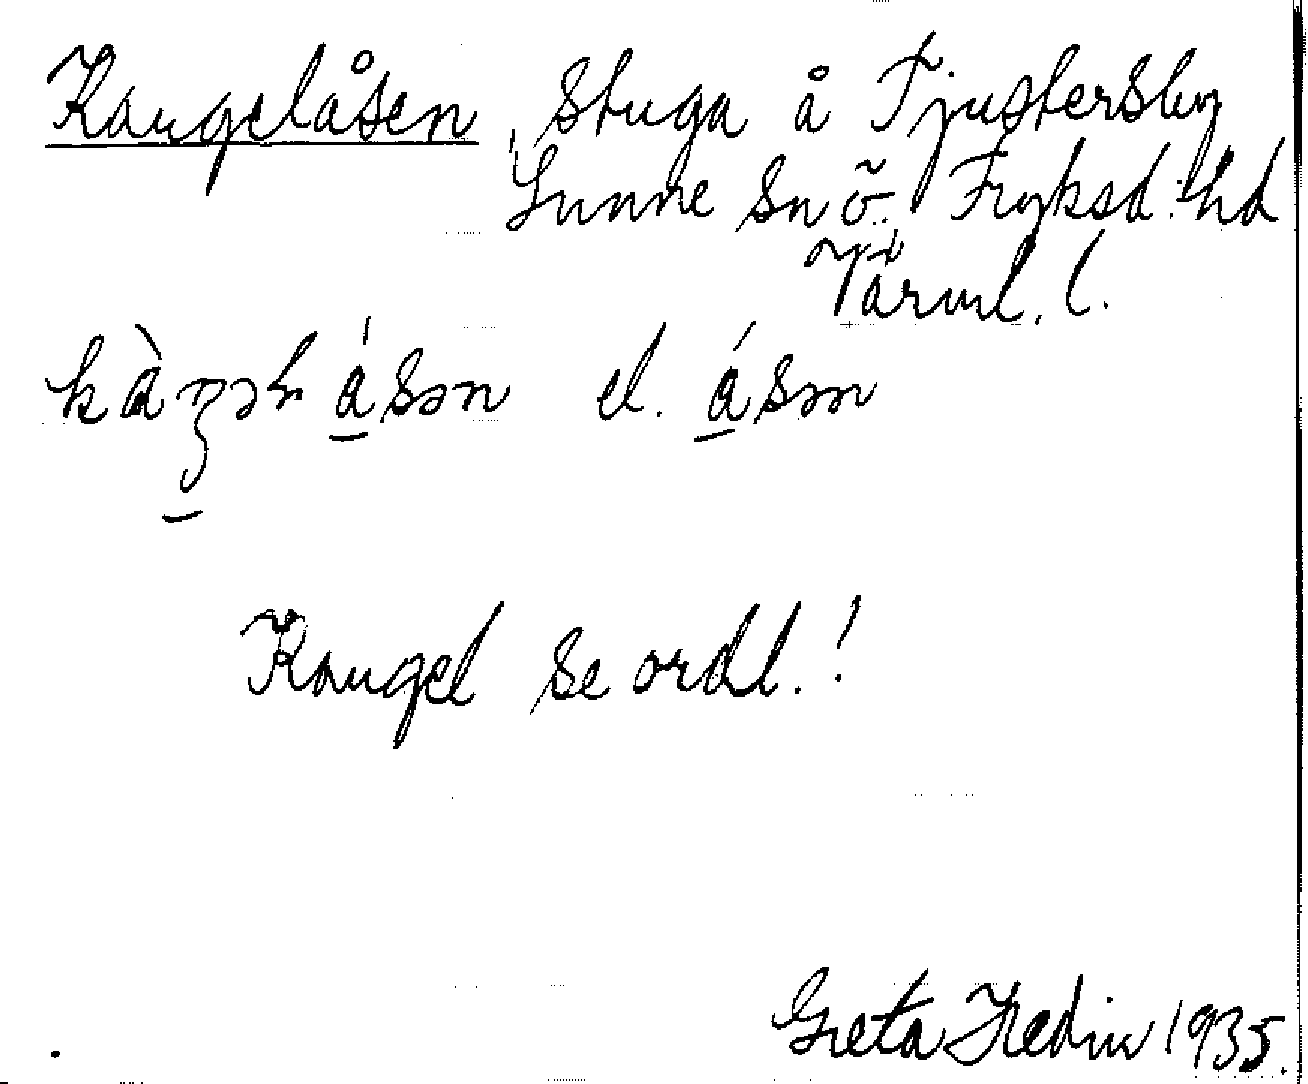 Kangelåsen, stuga å Tjustersby
Sunne sn ö. Fryksd. hd
Värml. l.
el.
Kangel se ordl.!
Greta Hedin 1935.